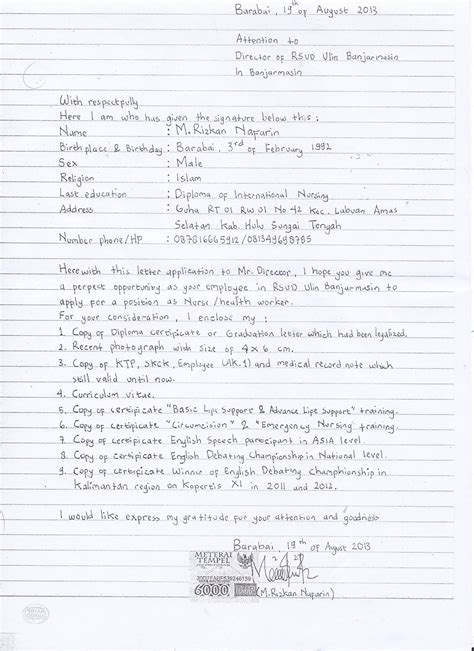 Barabai, 19th of August 2013
Attention to
Director of RSUD Ulin Banjarmasin
In Banjarmasin
With respectfully
Here I am who has given the signature below this :
Name : M. Rizkan Nafarin
Birthplace & Birthday : Barabai, 3rd of February 1992
Sex : Male
Religion : Islam
Last education : Diploma of International Nursing
Address : Guha RT 01 RW 01 No 42 Kec. Labuan Amas
Selatan Kab. Hulu Sungai Tengah
Number phone/HP : 087816665912 / 081349698785
Herewith this letter application to Mr. Director, I hope you give me
a perfect opportunity as your employee in RSUD Ulin Banjarmasin to
apply for a position as Nurse / health worker.
For your consideration, I enclose my :
1. Copy of Diploma certificate or Graduation letter which had been legalized.
2. Recent photograph with size of 4 x 6 cm.
3. Copy of KTP, SKCK, Employee (AK.1) and medical record note which
still valid until now.
4. Curriculum vitae.
5. Copy of certificate "Basic Life Support & Advance Life Support" training.
6. Copy of certificate "Circumcision" & "Emergency Nursing" training.
7. Copy of certificate English Speech participant in ASIA level.
8. Copy of certificate English Debating Championship in National level.
9. Copy of certificate Winner of English Debating Champhionship in
Kalimantan region on Kopertis XI in 2011 and 2012.
I would like express my gratitude for your attention and goodness
Barabai, 19th of August 2013
METERAI
TEMPEL
6000
(M.Rizkan Nafarin)